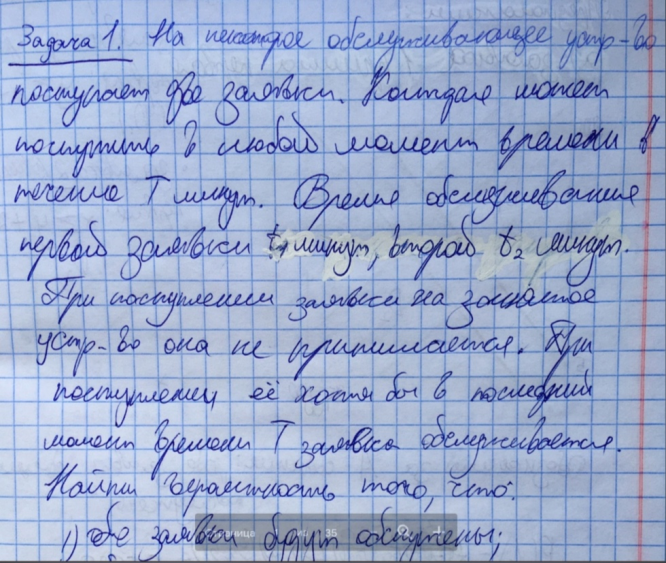 Задача 1. На некоторое обслуживающее устр-во
поступает две заявки. Каждая может
поступить в любой момент времени в
течение T минут. Время обслуживания
первой заявки t₁ минут, второй t₂ минут.
При поступлении заявки на занятое
устр-во она не принимается. При
поступлении её хотя бы в последний
момент времени T заявка обслуживается.
Найти вероятность того, что:
1) обе заявки будут обслужены;
35